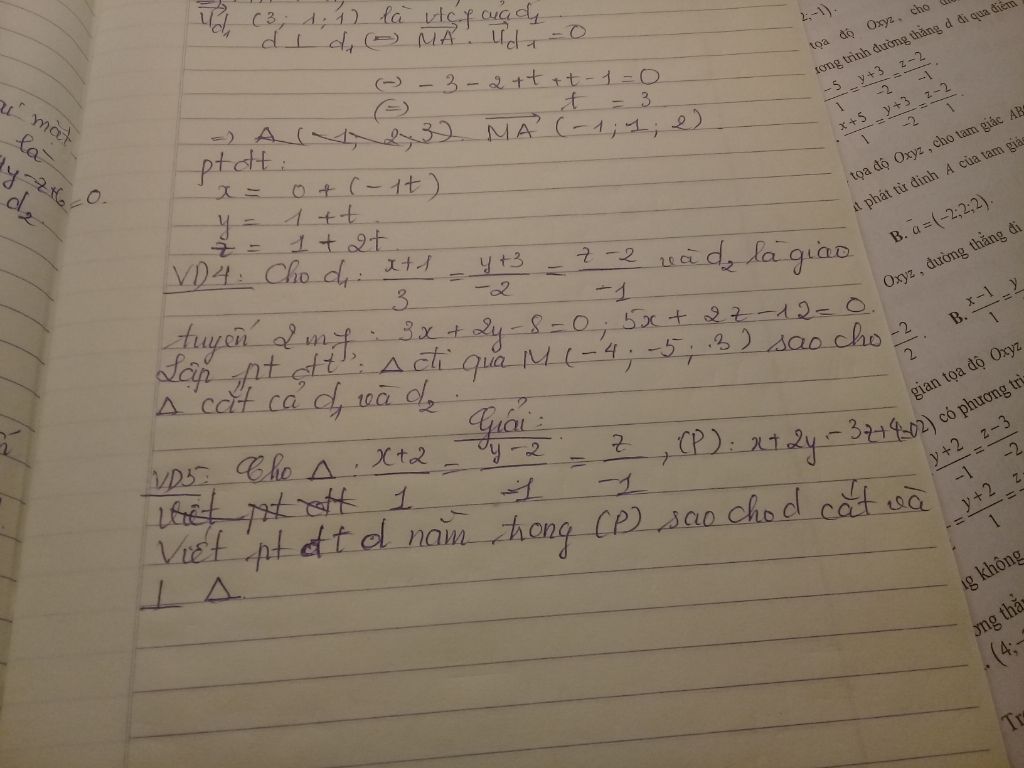 U⃗d₁ (3; 1; 1) là vtcp của d₁
d ⊥ d₁ (=) MA . Ud₁ = 0
(=) -3 - 2 + t + t - 1 = 0
(=) t = 3
=) A (-1, 2, 3) MA (-1; 1; 2)
pt đtt:
x = 0 + (-1t)
y = 1 + t
z = 1 + 2t
VD4: Cho d₁: x+1/3 = y+3/-2 = z-2/-1 và d₂ là giao
tuyến 2 mp: 3x + 2y - 8 = 0; 5x + 2z - 12 = 0.
Lập pt đtt: Δ đi qua M (-4; -5; 3) sao cho
Δ cắt cả d₁ và d₂.
Giải:
VD5: Cho Δ: x+2/1 = y-2/-1 = z/-1, (P): x + 2y - 3z + 4 = 0
Viết pt đtt
Viết pt đt d nằm trong (P) sao cho d cắt và
⊥ Δ.
mặt
là
y - z + 6 = 0.
d₂
2;-1).
tọa độ Oxyz, cho
trình đường thẳng d đi qua điểm
-5/1 = y+3/-2 = z-2/-1.
x+5/1 = y+3/-2 = z-2/1.
tọa độ Oxyz, cho tam giác ABC
phát từ đỉnh A của tam giác
B. a⃗=(-2;2;2).
Oxyz, đường thẳng đi
B. x-1/1 = y
-2/2.
gian tọa độ Oxyz
2) có phương trình
y+2/-1 = z-3/-2
= y+2/1 = z
không
thẳng
(4;-